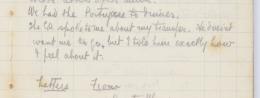 We had the Portuguese to dinner.
The CO spoke to me about my transfer. He doesn't
want me to go, but I told him exactly how
I feel about it.
Letters From